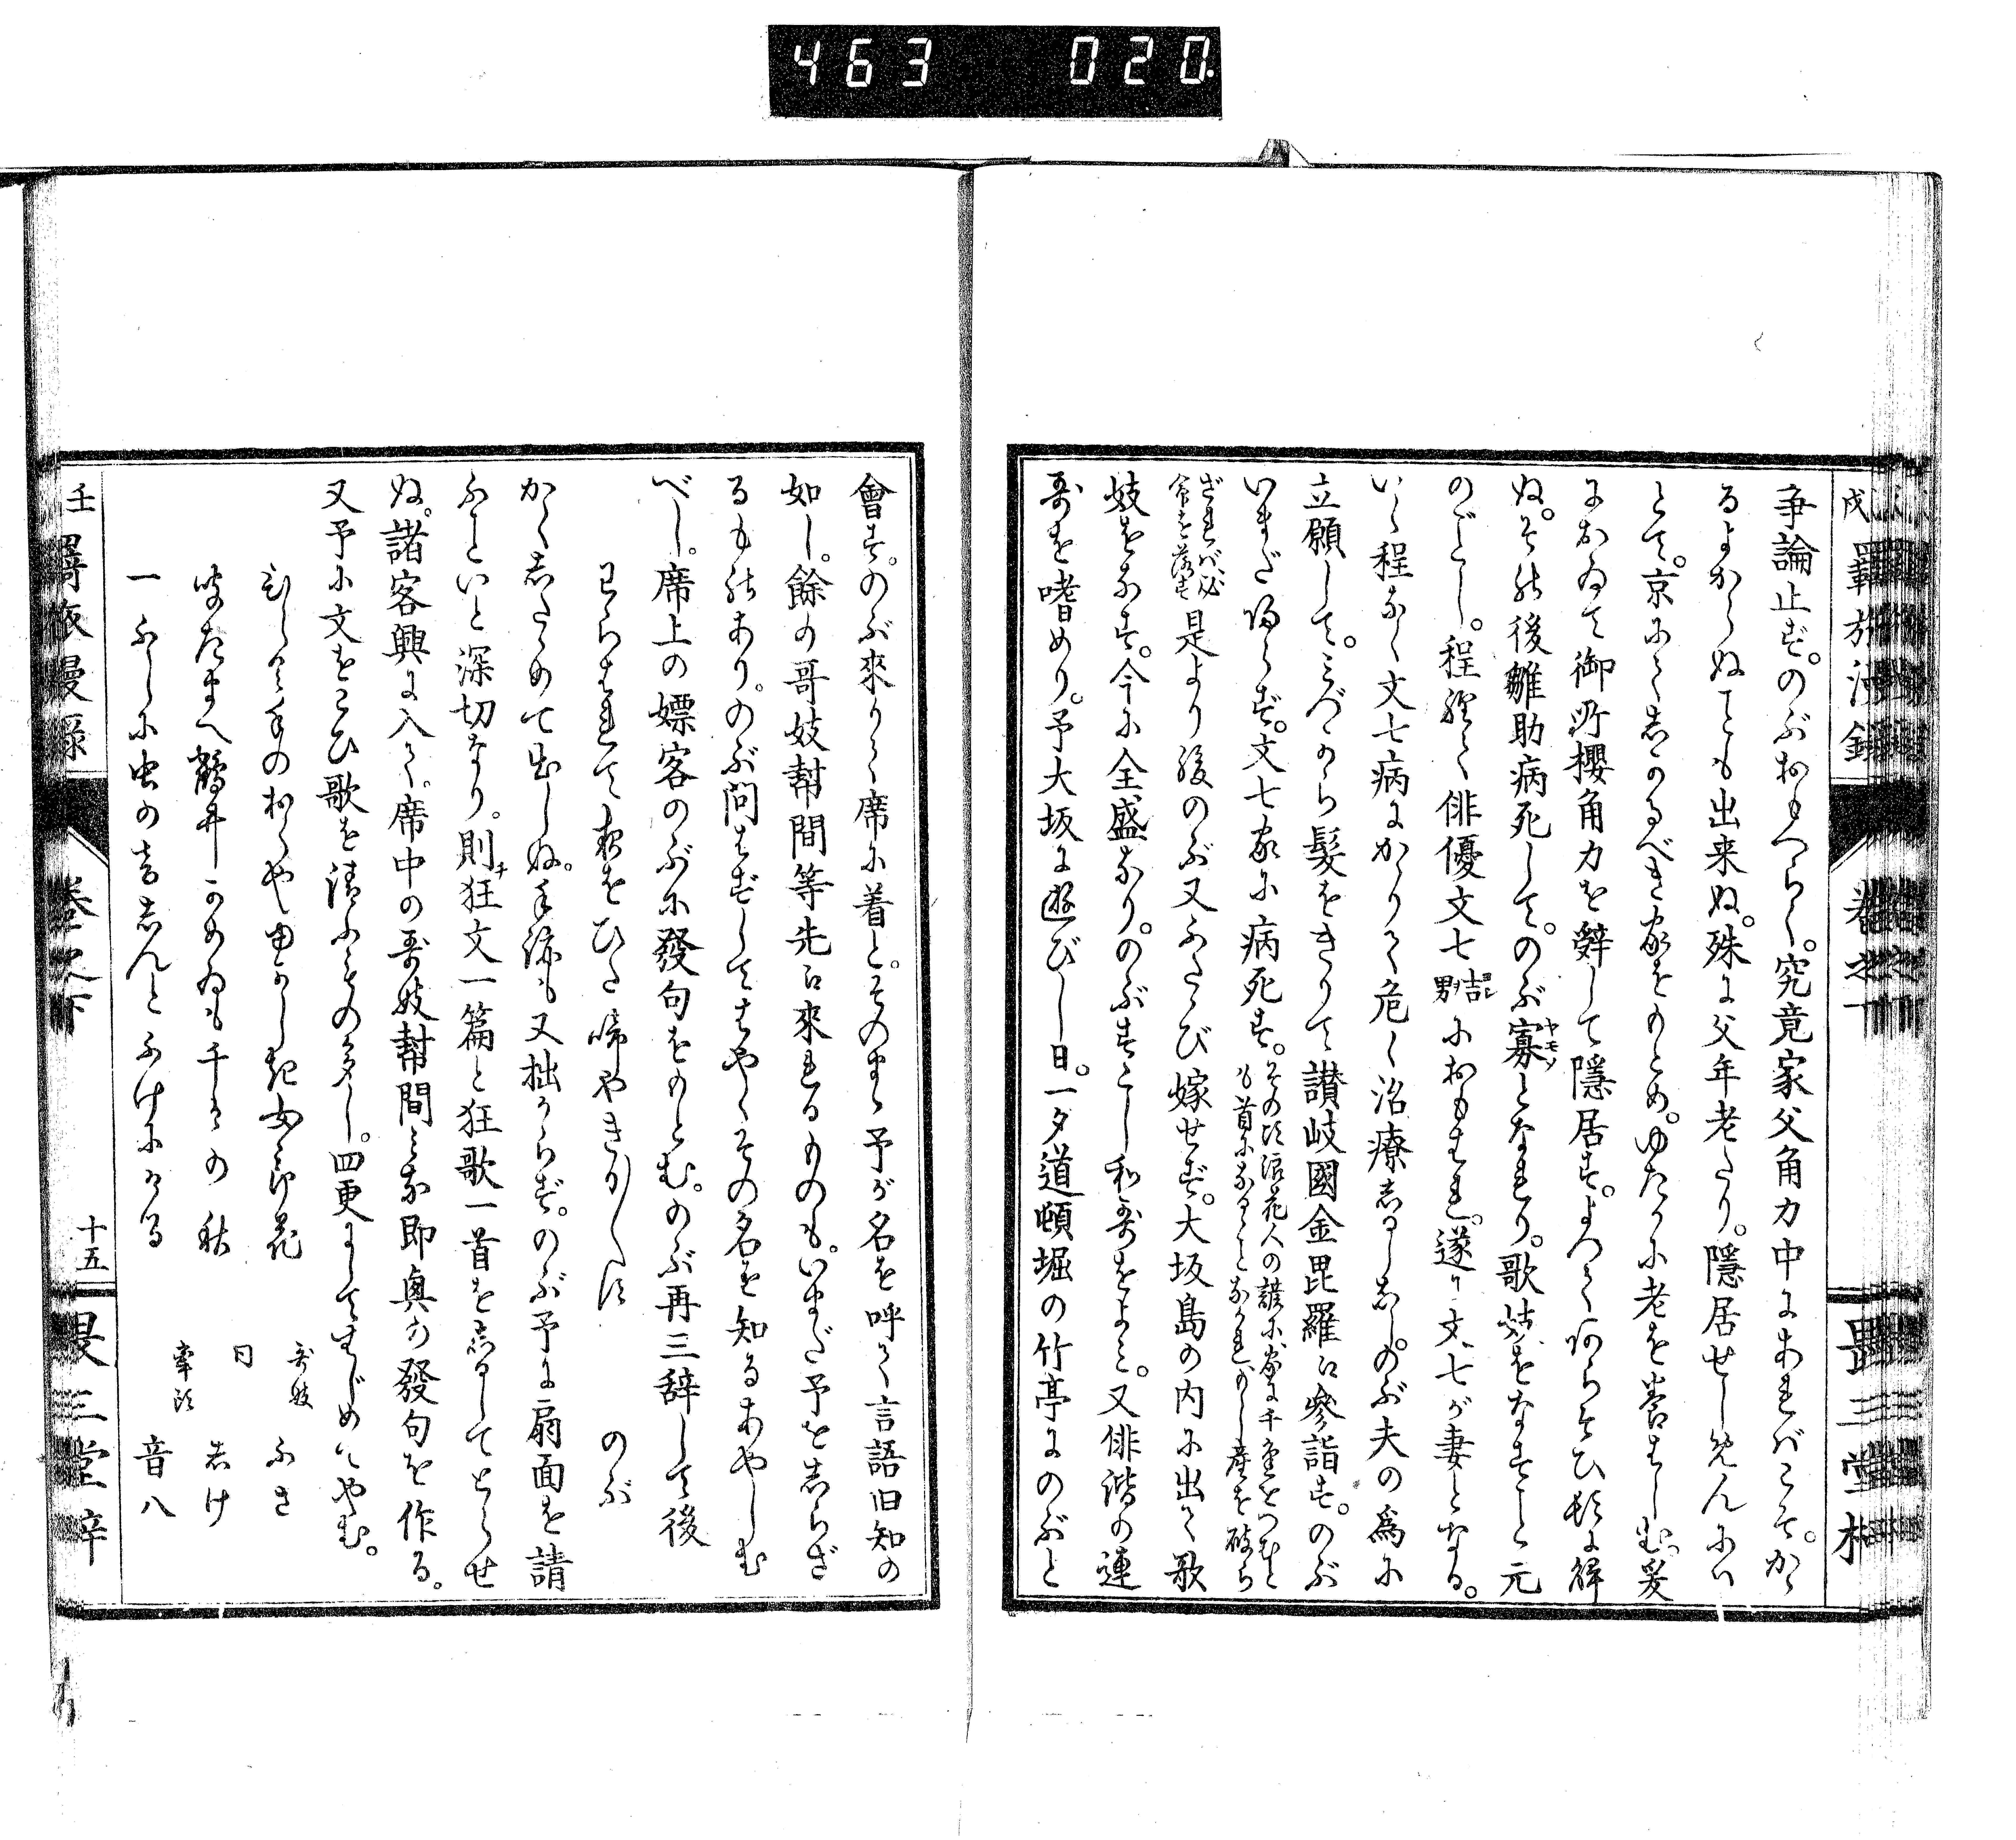 463 020
壬戌羇旅漫録 巻之下 畏三堂梓
争論止ず。のぶおもへらく。究竟家父角力中にあればこそ。かゝ
るよからぬことも出来ぬ。殊に父年老たり。隠居せしめんにハ
とて。京にてしかるべき家をもとめ。ゆたかに老を養はしむ。爰
におゐて御所櫻角力を辞して隠居す。よつてあらそひ頓に解
ぬ。その後雛助病死して。のぶ寡ヤモメとなれり。歌妓をなすこと元
のごとし。程経て俳優文七男吉に おもはれ。遂に文七が妻となる。
いく程なく文七病にかゝりて危く治療しるしなし。のぶ夫の為に
立願して。みづから髪をきりて讃岐國金毘羅に参詣す。のぶ
いまだ帰らず。文七家に病死す。その頃浪花人の諺に、家に千金をつむと
も首になることなかれ、もし産を破ら
ざれバ、必
命を落す
是より後のぶ又ふたゝび嫁せず。大坂島の内に出て歌
妓をなす。今に全盛なり。のぶすこし和歌をよみ。又俳諧の連
哥を嗜めり。予大坂に遊びし日。一夕道頓堀の竹亭にのぶと
會す。のぶ來りて席に着と。そのまゝ予が名を呼て言語旧知の
如し。餘の哥妓幇間等先に來れるものも。いまだ予をしらざ
るものあり。のぶ問はずしてはやくその名を知るあやしむ
べし。席上の嫖客のぶに發句をもとむ。のぶ再三辞して後
わらはれて顔をひた啼やきりぎりす のぶ
かくしたゝめて出しぬ。手跡も又拙からず。のぶ予に扇面を請
ふこといと深切なり。則チ狂文一篇と狂歌一首をしるしてとらせ
ぬ。諸客興に入て。席中の哥妓幇間みな即興の發句を作る。
又予に文をこひ歌を請ふもの多し。四更にしてはじめてやむ。
ひくその手のおくやゆかしき女郎花 哥妓 ふさ
咲たまへ鶴井かめゐも千よの秋 同 しげ
一ふしに虫の音しんとふけにける 牽頭 音八
壬戌羇旅漫録 巻之下 十五 畏三堂梓